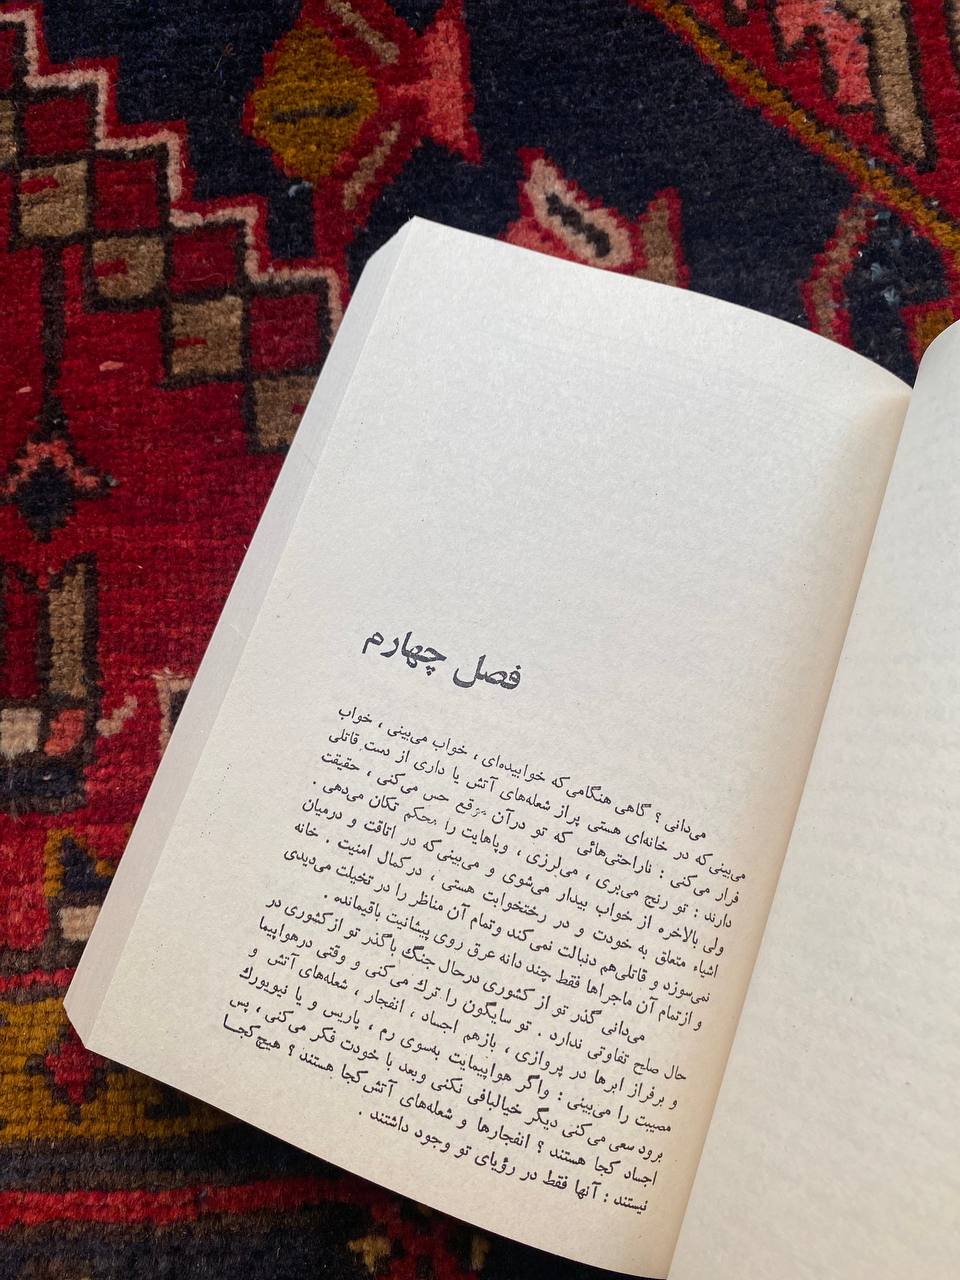 فصل چهارم
می‌دانی ؟ گاهی هنگامی‌که خوابیده‌ای ، خواب می‌بینی ، خواب
می‌بینی‌که در خانه‌ای هستی پراز شعله‌های آتش یا داری از دست قاتلی
فرار می‌کنی : ناراحتی‌هائی که تو درآن موقع حس می‌کنی ، حقیقت
دارند : تو رنج می‌بری ، می‌لرزی ، وپاهایت را محکم تکان می‌دهی .
ولی بالاخره از خواب بیدار می‌شوی و می‌بینی‌که در اتاقت و درمیان
اشیاء متعلق به خودت و در رختخوابت هستی ، درکمال امنیت . خانه
نمی‌سوزد و قاتلی‌هم دنبالت نمی‌کند وتمام آن مناظر را در تخیلت می‌دیدی
و ازتمام آن ماجراها فقط چند دانه عرق روی پیشانیت باقیمانده .
می‌دانی گذر تو از کشوری درحال جنگ باگذر تو ازکشوری در
حال صلح تفاوتی ندارد . تو سایگون را ترك می‌کنی و وقتی درهواپیما
و برفراز ابرها در پروازی ، بازهم اجساد ، انفجار ، شعله‌های آتش و
مصیبت را می‌بینی : واگر هواپیمایت به‌سوی رم ، پاریس و یا نیویورك
برود سعی می‌کنی دیگر خیالبافی نکنی وبعد با خودت فکر می‌کنی ، پس
اجساد کجا هستند ؟ انفجارها و شعله‌های آتش کجا هستند ؟ هیچ کجـا
نیستند : آنها فقط در رؤیای تو وجود داشتند .